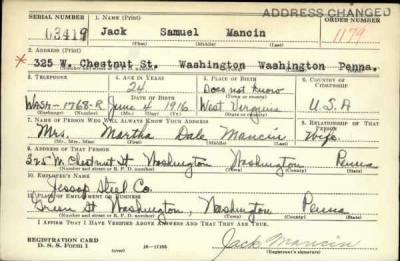 ADDRESS CHANGED
SERIAL NUMBER 1. NAME (Print) ORDER NUMBER
Jack Samuel Mancin 1179
(First) (Middle) (Last)
2. ADDRESS (Print)
* 325 W. Chestnut St. Washington Washington Penna.
(Number and street or R. F. D. number) (Town) (County) (State)
3. TELEPHONE 4. AGE IN YEARS 5. PLACE OF BIRTH 6. COUNTRY OF CITIZENSHIP
24 Does not know
DATE OF BIRTH (Town or county)
WASH-1768-R June 4 1916 West Virginia U.S.A
7. NAME OF PERSON WHO WILL ALWAYS KNOW YOUR ADDRESS 8. RELATIONSHIP OF THAT PERSON
Mrs. Martha Dale Mancin Wife
(Mr., Mrs., Miss) (First) (Middle) (Last)
9. ADDRESS OF THAT PERSON
325 W. Chestnut St Washington Washington Penna
(Number and street or R. F. D. number) (Town) (County) (State)
10. EMPLOYER'S NAME
Jessop Steel Co.
11. PLACE OF EMPLOYMENT OR BUSINESS
Green St Washington, Washington Penna
(Number and street or R. F. D. number) (Town) (County) (State)
I AFFIRM THAT I HAVE VERIFIED ABOVE ANSWERS AND THAT THEY ARE TRUE.
REGISTRATION CARD
D. S. S. Form 1 (over) 16-17105 Jack Mancin
(Registrant's signature)